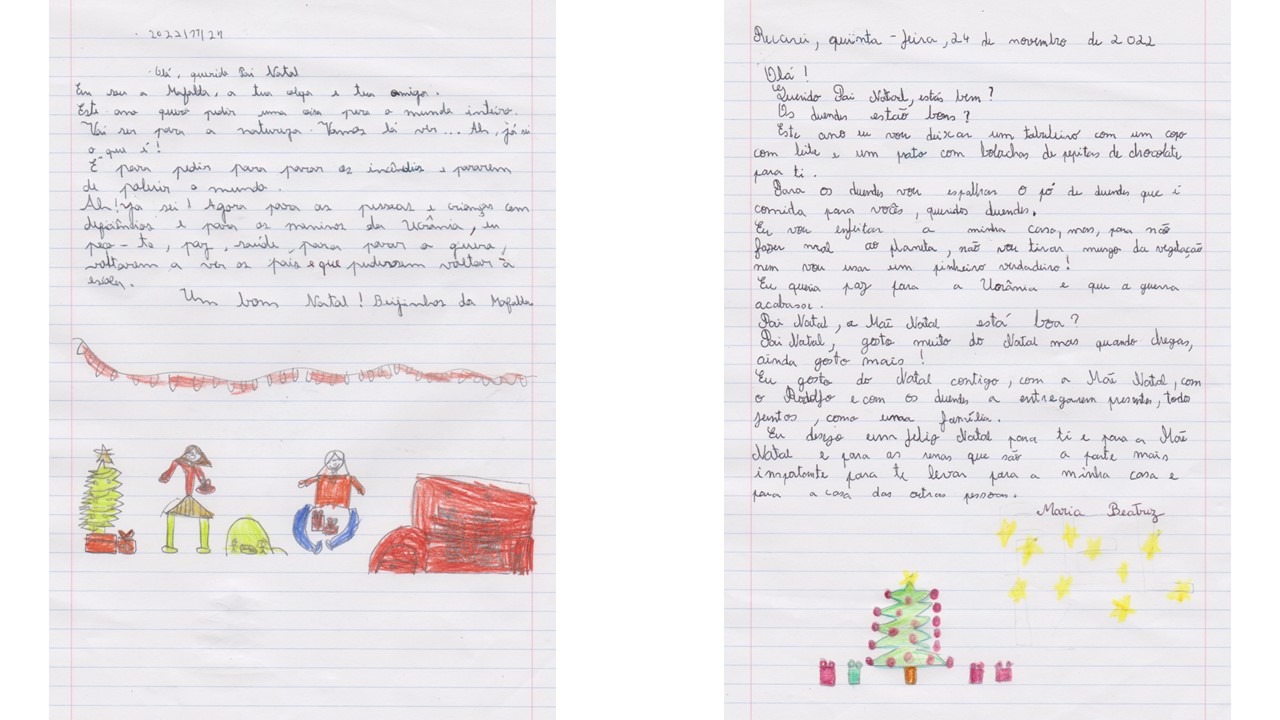 2022/11/24
Olá, querido Pai Natal
Eu sou a Mafalda, a tua e tua amiga.
Este ano quero pedir uma coisa para o mundo inteiro.
Vai ser para a natureza. Vamos lá ver... Ah, já sei
o que é!
É para pedir para parar os incêndios e pararem
de poluir o mundo.
Ah! Já sei! Agora para as pessoas e crianças com
deficiências e para os meninos da Ucrânia, eu
peço-te, paz, saúde, para parar a guerra,
voltarem a ver os pais e que pudessem voltar à
escola.
Um bom Natal! Beijinhos da Mafalda
Recarei, quinta-feira, 24 de novembro de 2022
Olá!
Querido Pai Natal, estás bem?
Os duendes estão bons?
Este ano eu vou deixar um tabuleiro com um copo
com leite e um prato com bolachas de pepitas de chocolate
para ti.
Para os duendes vou espalhar o pó de duendes que é
comida para vocês, queridos duendes.
Eu vou enfeitar a minha casa, mas, para não
fazer mal ao planeta, não vou tirar musgo da vegetação
nem vou usar um pinheiro verdadeiro!
Eu queria paz para a Ucrânia e que a guerra
acabasse.
Pai Natal, a Mãe Natal está boa?
Pai Natal, gosto muito do Natal mas quando chegas,
ainda gosto mais!
Eu gosto do Natal contigo, com a Mãe Natal, com
o Rodolfo e com os duendes a entregarem presentes, todos
juntos, como uma família.
Eu desejo um feliz Natal para ti e para a Mãe
Natal e para as renas que são a parte mais
importante para te levar para a minha casa e
para a casa das outras pessoas.
Maria Beatriz